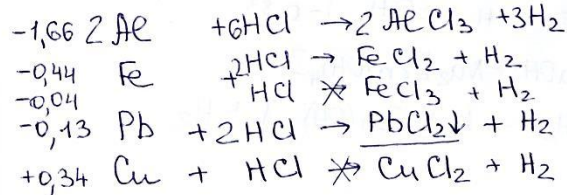 -1,66 2 Al + 6HCl → 2 AlCl₃ + 3H₂
-0,44 Fe + 2HCl → FeCl₂ + H₂
-0,04 HCl ↛ FeCl₃ + H₂
-0,13 Pb + 2 HCl → PbCl₂↓ + H₂
+0,34 Cu + HCl ↛ CuCl₂ + H₂